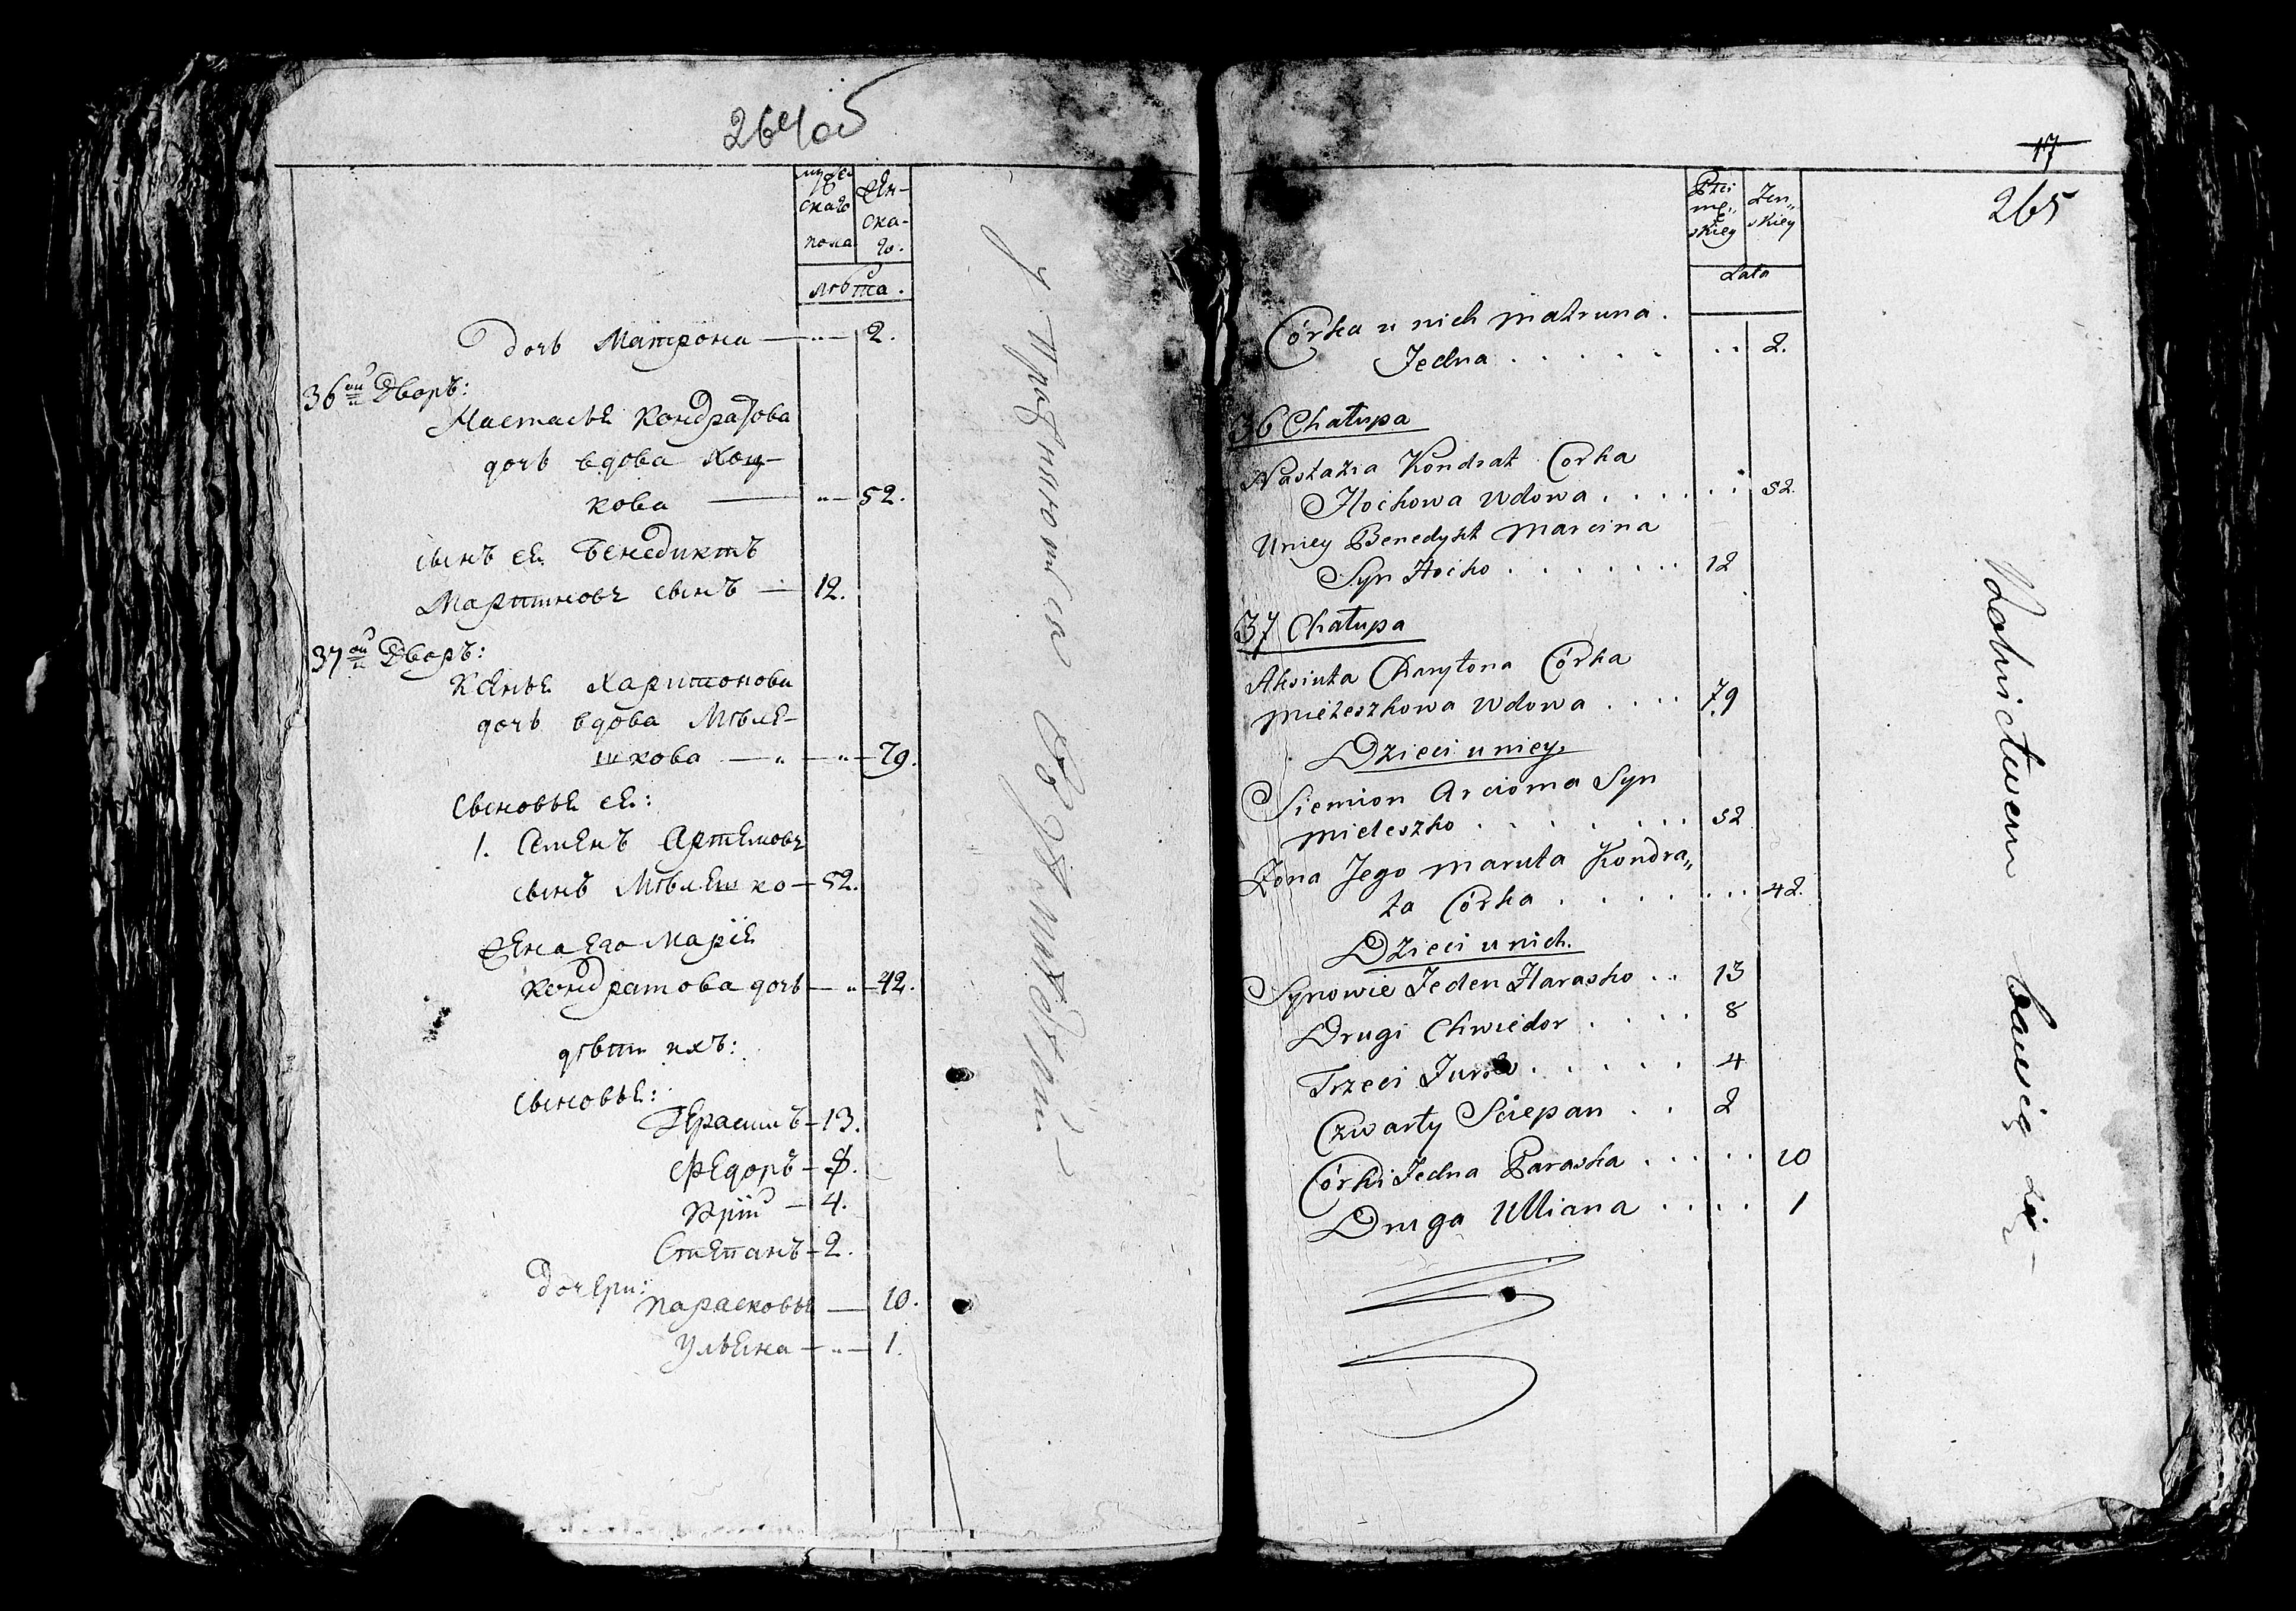 264 об
мужескаго пола
Женскаго.
лѣта.
дочь Матрона — 2.
36ой Дворъ:
Настасья Кондратова
дочь вдова Хоц-
кова — 52.
сынъ ея Бенедиктъ
Мартиновъ сынъ — 12.
37ой Дворъ:
Ксенья Харитонова
дочь вдова Мѣле-
шкова — 79.
Сыновья ея:
1. Семенъ Артемовъ
сынъ Мѣлешко — 52.
Жена его Марія
Кондратова дочь — 42.
дѣти ихъ:
Сыновья:
Герасимъ — 13.
Федоръ — 8.
Юрій — 4.
Степанъ — 2.
Дочери:
Парасковья — 10.
Ульяна — 1.
17
265
Płci
mę,,
skiey
Żen,,
skiey
Lata
Córka u nich Matruna.
Jedna . . . . . . . 2.
36 Chałupa
Nastazia Kondrat Corka
Hockowa Wdowa . . . . . . 52.
Uniey Benedykt Marcina
Syn Hocko . . . . . . . 12
37 Chałupa
Aksiuta Charytona Córka
Mieleszkowa Wdowa . . . . 79
Dzieci u niey.
Siemion Arcioma Syn
Mieleszko . . . . . . . 52
Żona Jego Maruta Kondra,,
ta Córka . . . . . . . . 42.
Dzieci u nich.
Synowie Jeden Harasko . . 13
Drugi Chwiedor . . . . 8
Trzeci Jurko . . . . . 4
Czwarty Sciepan . . 2
Córki Jedna Paraska . . . . . 10
Druga Ulliana . . . . . 1